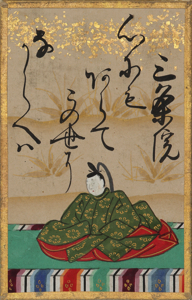 三条院
心にも
あらて
この世に
なからへハ